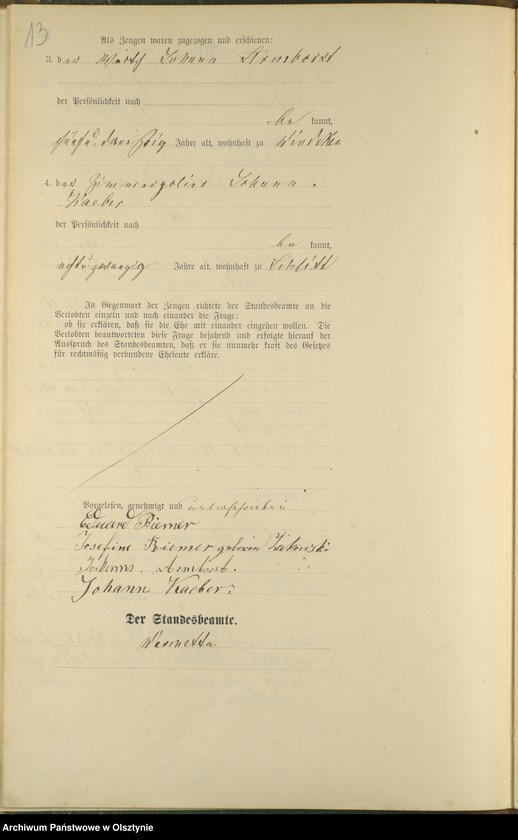 13
Als Zeugen waren zugezogen und erschienen:
3. der Wirth Johann Armborst
der Persönlichkeit nach
be kannt,
fünfunddreißig Jahre alt, wohnhaft zu
4. der Zimmerpolier Johann
Kaeber
der Persönlichkeit nach
be kannt,
achtundzwanzig Jahre alt, wohnhaft zu
In Gegenwart der Zeugen richtete der Standesbeamte an die
Verlobten einzeln und nach einander die Frage:
ob sie erklären, daß sie die Ehe mit einander eingehen wollen. Die
Verlobten beantworteten diese Frage bejahend und erfolgte hierauf der
Ausspruch des Standesbeamten, daß er sie nunmehr kraft des Gesetzes
für rechtmäßig verbundene Eheleute erkläre.
Vorgelesen, genehmigt und unterschrieben
Eduard Riemer
Josefine Riemer geboren
Johann Armborst.
Johann Kaeber.
Der Standesbeamte.
Archiwum Państwowe w Olsztynie